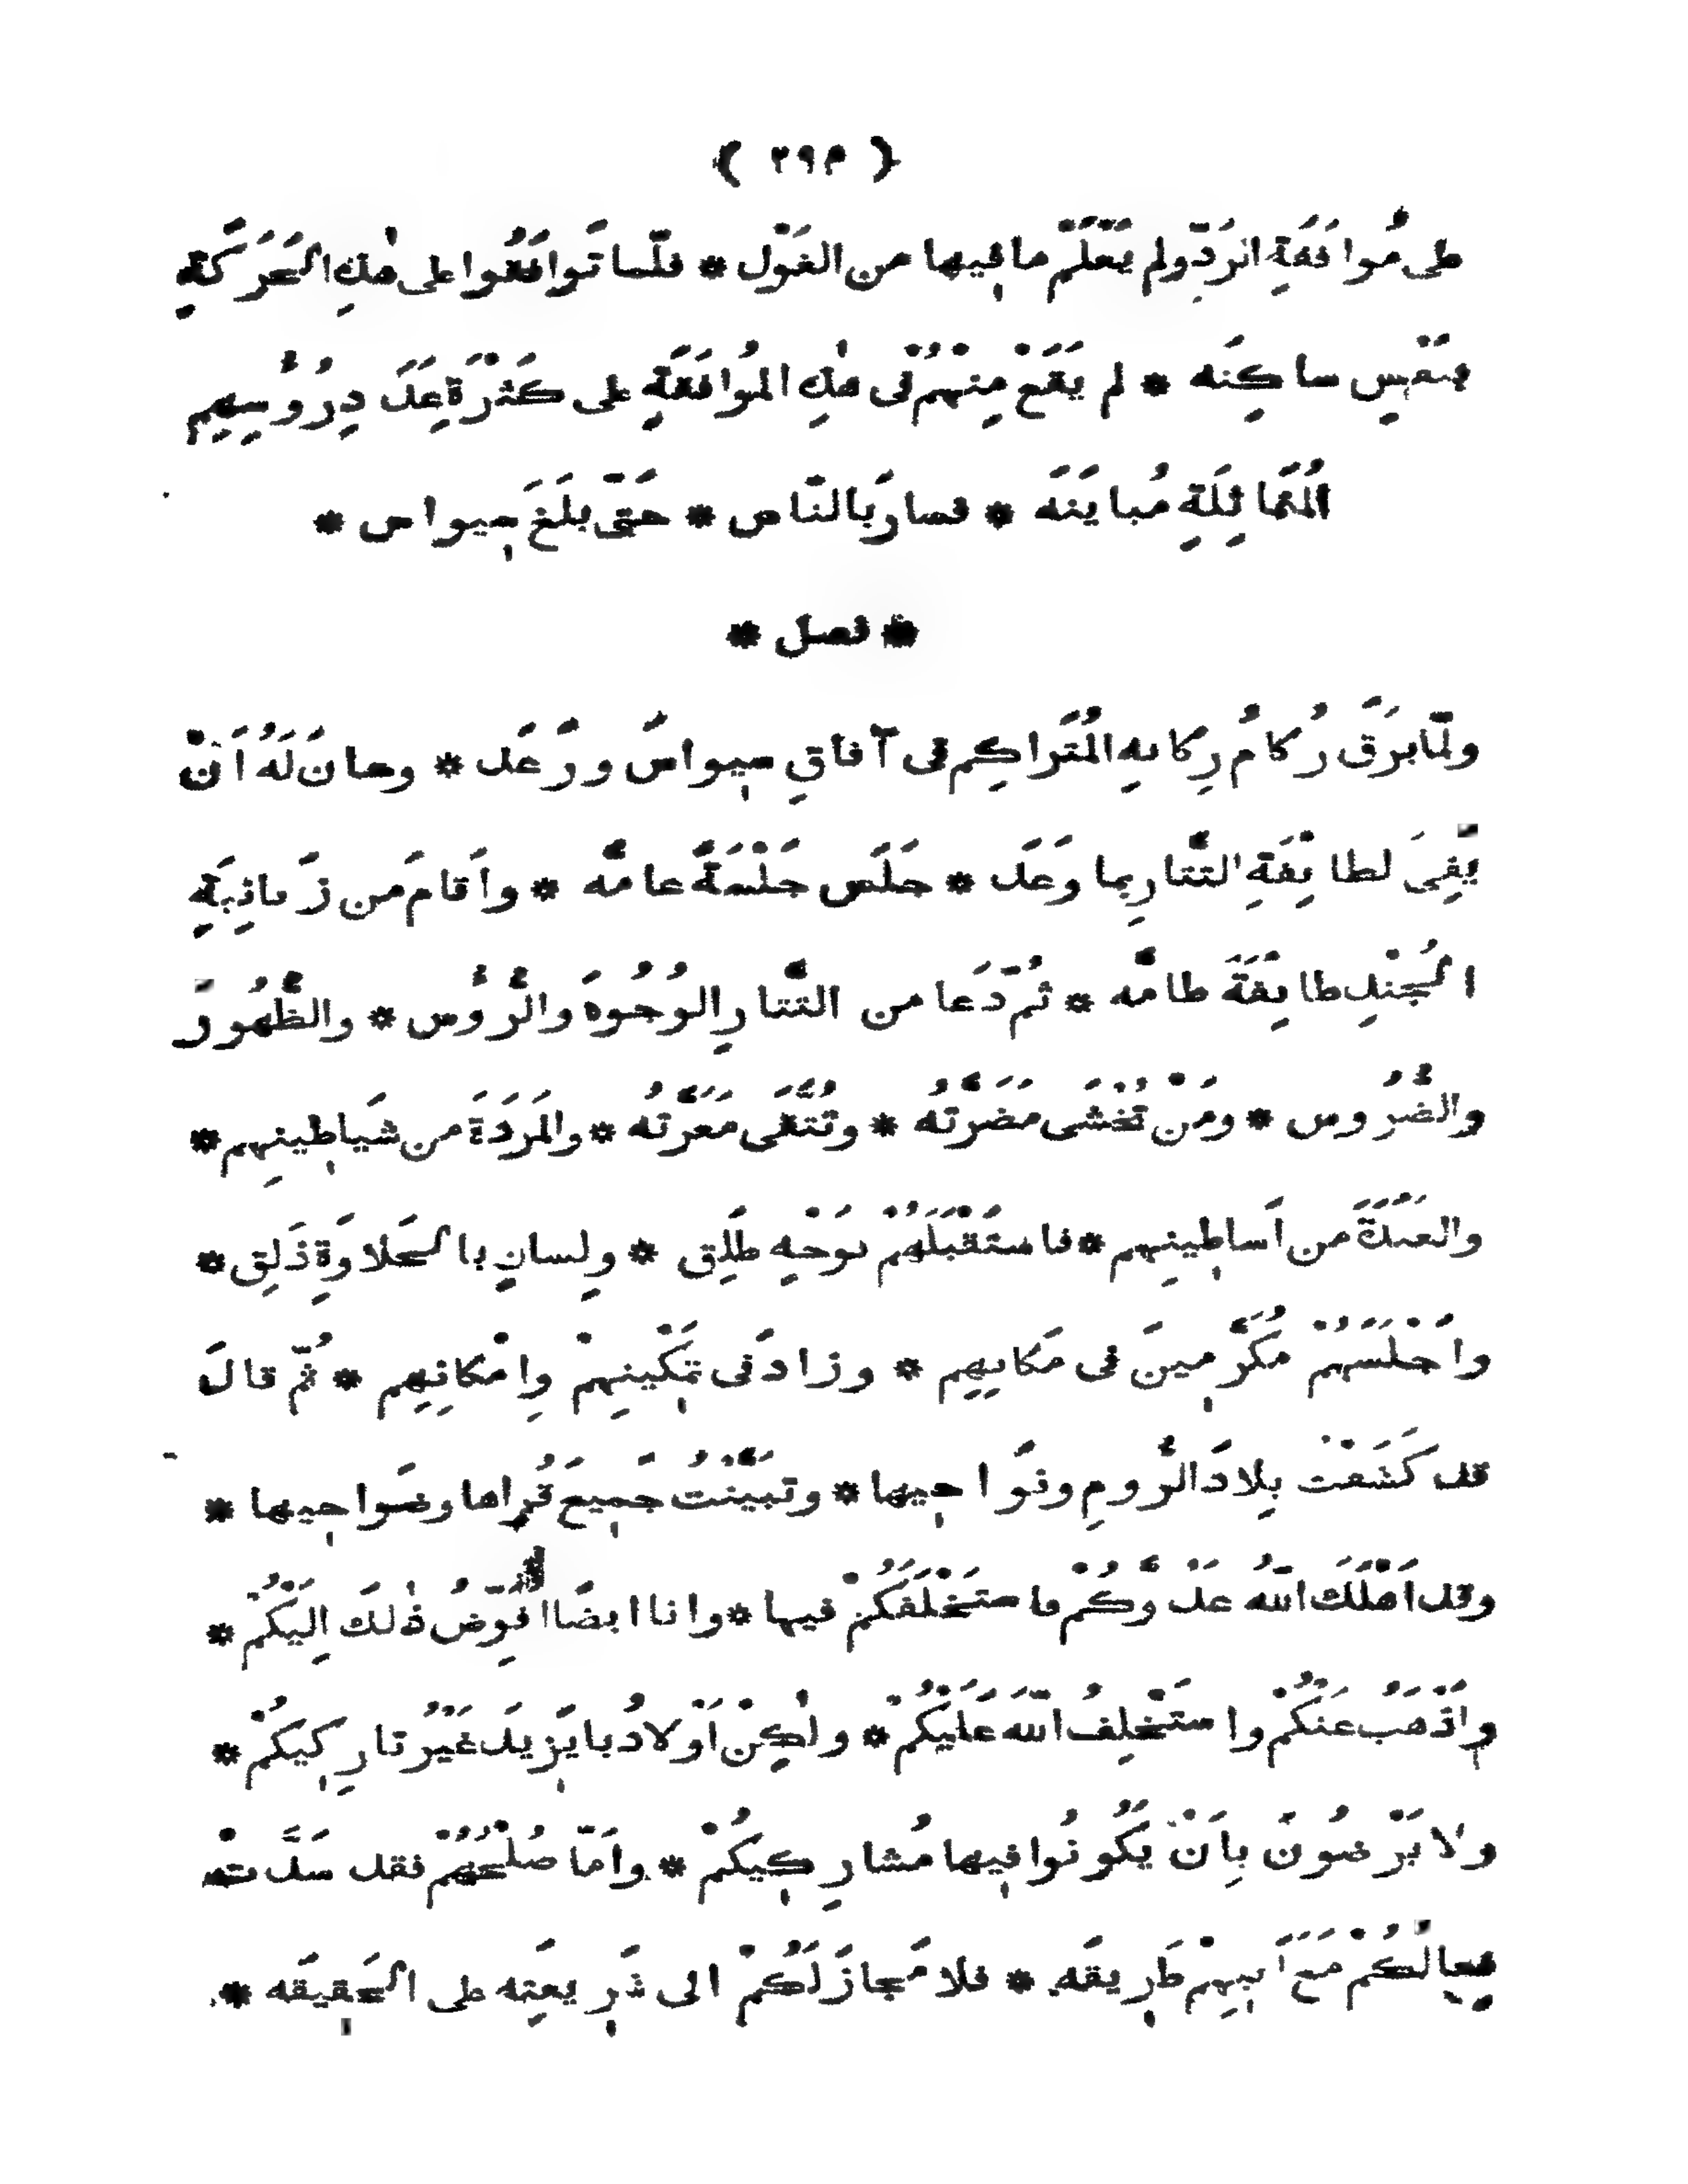 ( ٢٩٣ )
على مُوافَقَةِ الرَدّ ولم يَعْلَمْ ما فيها من الغَوْل * فلّما تَوافَقُوا على هٰذِهِ الحَرَكَةِ
بنَفْسٍ ساكِنَه * لم يَقَعْ مِنْهُمْ فى هٰذِهِ المُوافَقَةِ على كَثْرَةِ عَدَدِ رُؤُسِهِم
المُتَماثِلَةِ مُبايَنَه * فسارَ بالنّاس * حَتّى بلَغَ سِيواس *
* فصل *
ولمّا بَرَقَ رُكامُ رِكابِهِ المُتَراكِم فى آفاقِ سيواسَ ورَعَد * وحانَ لَهُ اَنْ
يَفِىَ لطايِفَةِ التَّتارِ بما وَعَد * جَلَسَ جَلْسَةً عامَّه * واَقامَ من زَبانِيَةِ
الجُنْدِ طايِفَةً طامَّه * ثُمّ دَعا من التَّتارِ الوُجُوهَ والرُّؤُس * والظُّهُورَ
والضُّرُوس * ومَنْ تُخْشَى مَضَرَّتُه * وتُتَّقَى مَعَرَّتُه * والمَرَدَةَ من شَياطِينِهِم *
والعَنَدَةَ من اَساطِينِهِم * فاستَقْبَلَهُمْ بوَجْهٍ طَلِق * ولِسانٍ بالحَلاوَةِ ذَلِق *
واَجْلَسَهُمْ مُكَرَّمِينَ فى مَكانِهِم * وزادَ فى تمَكْينِهِمْ وِامْكانِهِم * ثُمّ قالَ
قد كَشَفْتُ بِلادَ الرُّومِ ونَواحِيها * وتبَيَّنْتُ جَميعَ قُراها وضَواحِيها *
وقد اَهْلَكَ اللّهُ عَدُوَّكُمْ فاستَخْلَفَكُمْ فيها * وانا ايضًا اُفَوِّضُ ذٰلك اِلَيكُمْ *
واَذْهَبُ عَنْكُمْ واستَخْلِفُ اللّهَ عَلَيْكُمْ * ولٰكِنْ اَوْلادُ بايَزِيدَ غَيْرُ تارِكِيكُمْ *
ولا يَرْضَوْنَ بِاَنْ يَكُونُوا فيها مُشارِكِيكُمْ * واَمّا صُلْحُهُمْ فقد سَدَّتْ
فِعالُكُمْ مَعَ اَبِيهِمْ طَرِيقَه * فلا مَجازَ لَكُمْ الى شَرِيعَتِه على الحَقِيقَه *